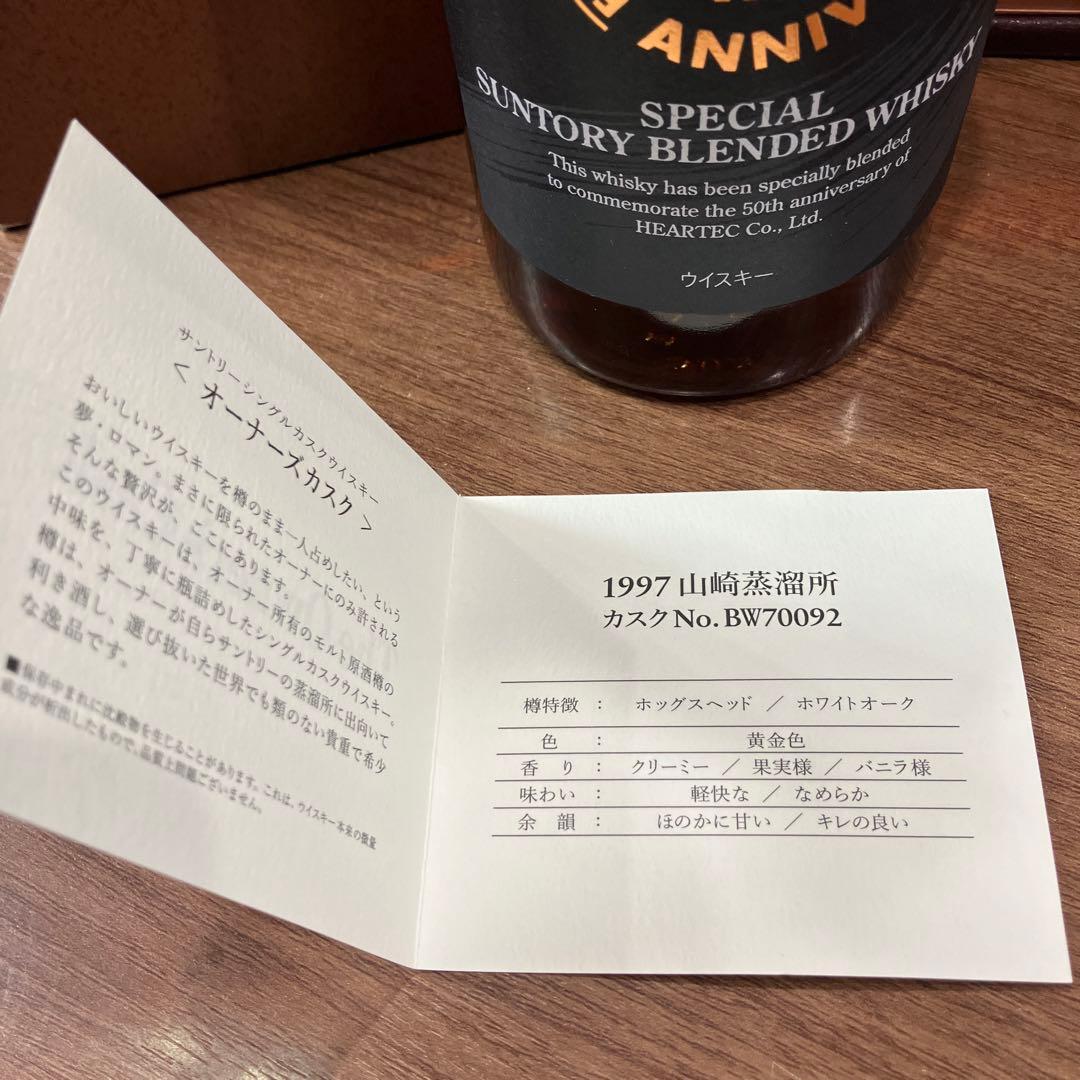 ANNIV
SPECIAL
SUNTORY BLENDED WHISKY
This whisky has been specially blended
to commemorate the 50th anniversary of
HEARTEC Co., Ltd.
ウイスキー
サントリーシングルカスクウイスキー
< オーナーズカスク >
おいしいウイスキーを樽のまま一人占めしたい、という
夢・ロマン。まさに限られたオーナーにのみ許される
そんな贅沢が、ここにあります。
このウイスキーは、オーナー所有のモルト原酒樽の
中味を、丁寧に瓶詰めしたシングルカスクウイスキー。
樽は、オーナーが自らサントリーの蒸溜所に出向いて
利き酒し、選び抜いた世界でも類のない貴重で希少
な逸品です。
■保存中まれに沈殿物を生じることがあります。これは、ウイスキー本来の微量
成分が析出したもので、品質上問題ございません。
1997 山崎蒸溜所
カスク No. BW70092
樽特徴 : ホッグスヘッド / ホワイトオーク
色 : 黄金色
香り : クリーミー / 果実様 / バニラ様
味わい : 軽快な / なめらか
余韻 : ほのかに甘い / キレの良い